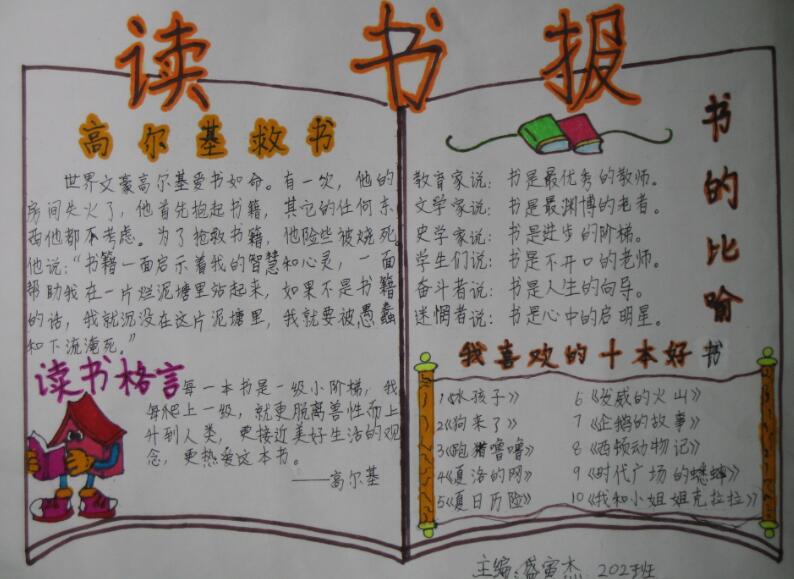 读书报
高尔基救书
世界文豪高尔基爱书如命。有一次，他的
房间失火了，他首先抱起书籍，其它的任何东
西他都不考虑。为了抢救书籍，他险些被烧死。
他说：“书籍一面启示着我的智慧和心灵，一面
帮助我在一片烂泥塘里站起来，如果不是书籍
的话，我就沉没在这片泥塘里，我就要被愚蠢
和下流淹死。”
读书格言
每一本书是一级小阶梯，我
每爬上一级，就更脱离兽性而上
升到人类，更接近美好生活的观
念，更热爱这本书。
——高尔基
书的比喻
教育家说：书是最优秀的教师。
文学家说：书是最渊博的老者。
史学家说：书是进步的阶梯。
学生们说：书是不开口的老师。
奋斗者说：书是人生的向导。
迷惘者说：书是心中的启明星。
我喜欢的十本好书
1《水孩子》
2《狗来了》
3《跑猪噜噜》
4《夏洛的网》
5《夏日历险》
6《发威的火山》
7《企鹅的故事》
8《西顿动物记》
9《时代广场的蟋蟀》
10《我和小姐姐克拉拉》
主编：盛寅杰 202班